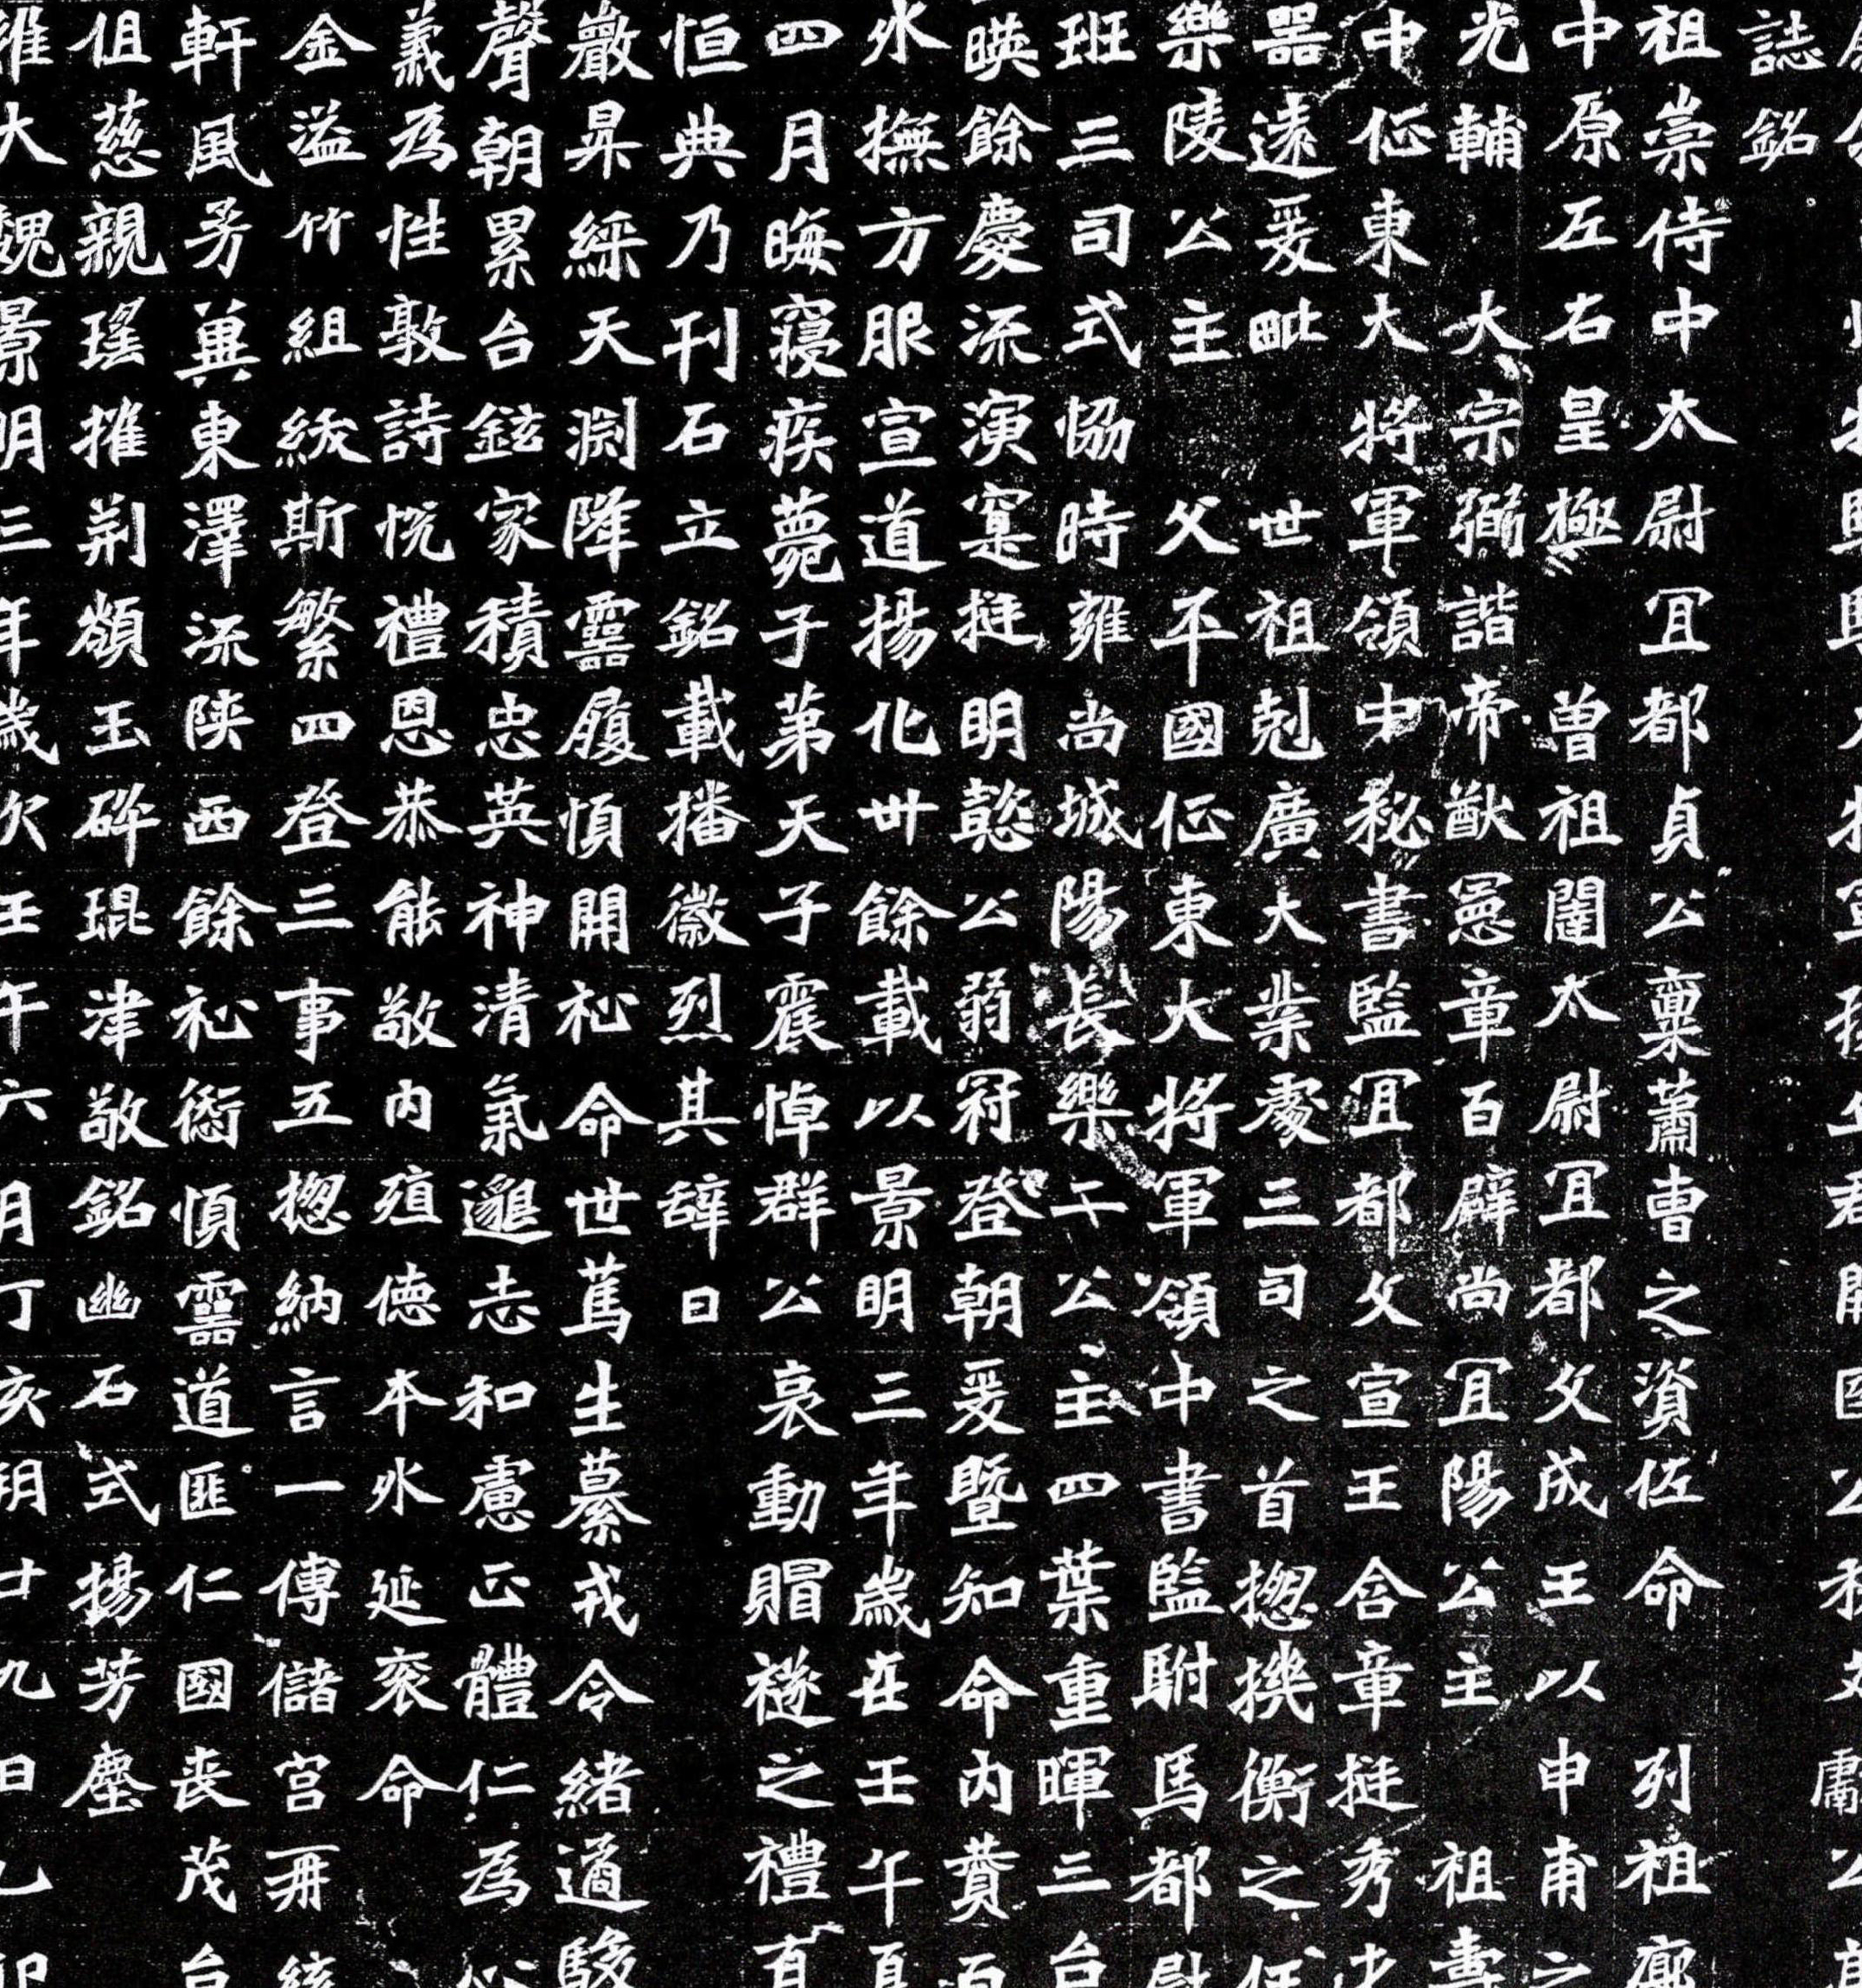 誌銘
祖崇侍中太尉冝都貞公稟蕭曹之資佐命列祖廓
中原左右皇極曾祖闥太尉冝都文成王以申甫之
光輔大宗弼諧帝猷憲章百辟尚冝陽公主祖壽
中征東大將軍領中秘書監冝都文宣王含章挺秀才
器遠爰毗世祖剋廣大業處三司之首揔機衡之任
樂陵公主父平國征東大將軍領中書監駙馬都尉
班三司式協時雍尚城陽長樂二公主四葉重暉三台
暎餘慶流演寔挺明懿公弱冠登朝爰暨知命內賛百
水撫方服宣道揚化卅餘載以景明三年歲在壬午夏
四月晦寢疾薨于第天子震悼群公哀動賵襚之禮有
恒典乃刊石立銘載播徽烈其辞曰
巖昇綵天淵降靈履順開祉命世篤生纂戎令緒遹駿
聲朝累台鉉家積忠英神清氣邈志和慮正體仁為心
義為性敦詩悅禮恩恭能敬內殖德本外延袞命
金溢竹組紱斯繁四登三事五揔納言一傅儲宮再統
軒風芳冀東澤流陝西餘祉愆順靈道匪仁國喪茂台
徂慈親瑤摧荊顏玉碎琨津敬銘幽石式揚芳塵
維大魏景明三年歲次壬午六月丁亥朔廿九日乙卯